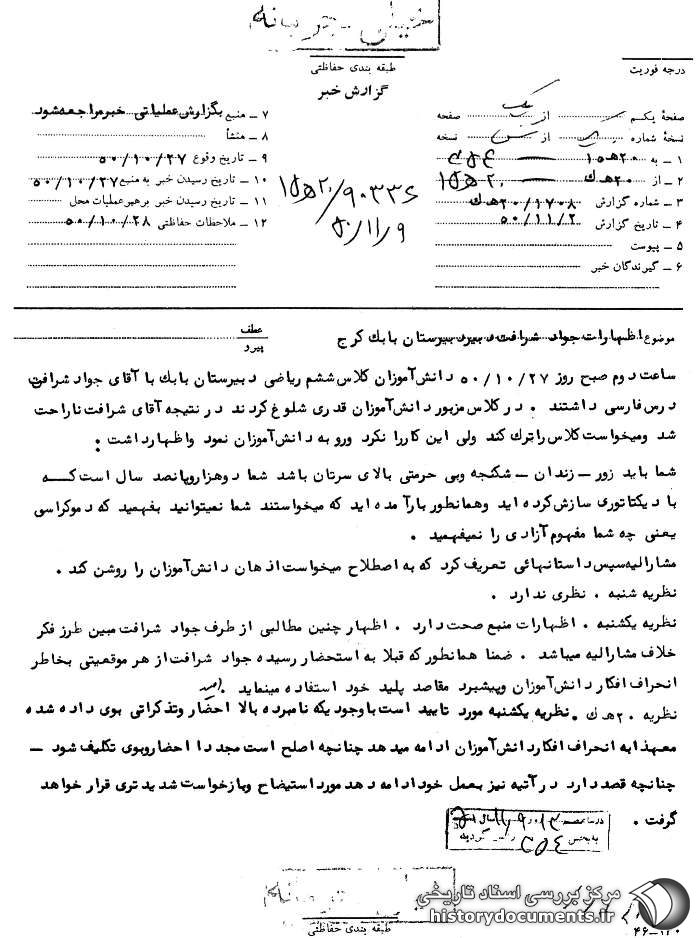 خیلی محرمانه
طبقه بندی حفاظتی
درجه فوریت
گزارش خبر
صفحهٔ یکم از یک صفحه
نسخهٔ شماره از نسخه
۱ ــ به ۲۰هـ۱۵
۲ ــ از ۲۰هـ ك
۳ ــ شماره گزارش ۲۰/۱۷۰۸هـ ك
۴ ــ تاریخ گزارش ۵۰/۱۱/۲
۵ ــ پیوست
۶ ــ گیرندگان خبر
۷ ــ منبع بگزارش عملیاتی خبر مراجعه شود
۸ ــ منشأ
۹ ــ تاریخ وقوع ۵۰/۱۰/۲۷
۱۰ ــ تاریخ رسیدن خبر به منبع ۵۰/۱۰/۲۷
۱۱ ــ تاریخ رسیدن خبر برهبر عملیات محل
۱۲ ــ ملاحظات حفاظتی ۵۰/۱۰/۲۸
۹۰۳۳۶/۲۰هـ۱۵
۵۰/۱۱/۹
موضوع اظهارات جواد شرافت دبیر دبیرستان بابك كرج
عطف
پیرو
ساعت دوم صبح روز ۵۰/۱۰/۲۷ دانش آموزان کلاس ششم ریاضی دبیرستان بابك با آقای جواد شرافت
درس فارسی داشتند . در کلاس مزبور دانش آموزان قدری شلوغ کردند در نتیجه آقای شرافت ناراحت
شد ومیخواست کلاس را ترك کند ولی این کار را نکرد ورو به دانش آموزان نمود واظهارداشت :
شما باید زور ــ زندان ــ شکنجه وبی حرمتی بالای سرتان باشد شما دوهزار وپانصد سال است کــه
با دیکتاتوری سازش کرده اید وهمانطور بارآمده اید که میخواستند شما نمیتوانید بفهمید که دموکراسی
یعنی چه شما مفهوم آزادی را نمیفهمید .
مشارالیه سپس داستانهائی تعریف کرد که به اصطلاح میخواست اذهان دانش آموزان را روشن کند .
نظریه شنبه . نظری ندارد .
نظریه یکشنبه . اظهارات منبع صحت دارد . اظهار چنین مطالبی از طرف جواد شرافت مبین طرز فکر
خلاف مشارالیه میباشد . ضمنا همانطور که قبلا به استحضار رسیده جواد شرافت از هر موقعیتی بخاطر
انحراف افکار دانش آموزان وپیشبرد مقاصد پلید خود استفاده مینماید .
نظریه ۲۰هـ ك . نظریه یکشنبه مورد تایید است با وجودیکه نامبرده بالا احضار وتذکراتی بوی داده شده
معهذا به انحراف افکار دانش آموزان ادامه میدهد چنانچه اصلح است مجددا احضار وبوی تکلیف شود ــ
چنانچه قصد دارد در آتیه نیز بعمل خود ادامه دهد مورد استیضاح وبازخواست شدیدتری قرار خواهد
گرفت .
مرکز بررسی اسناد تاریخی
historydocuments.ir
طبقه بندی حفاظتی